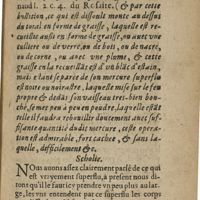 naud l. 2. c. 4. du Rosaire. (& par cette
ebulition, ce qui est dissoult monte au dessus
du toral en forme de graisse, laquelle est re-
cueillie aussi en forme de graisse, ou auec vne
culliere ou de verre, ou de bois, ou de nacre,
ou de corne, ou auec vne plume, & cette
graisse eslu recueillie est d'vn blãc d'estain,
mais estant separée de son mercure superflu
est noire ou noirastre, laquelle mise sur le feu
propre & dedãs son vaisseau tres-bien bou-
ché, se met peu à peu en poudre, laquelle estãt
telle il faudra rebouillir doucement auec suf-
fisante quantité du dit mercure, ceste opera-
tion est admirable, fort cachee, & sans la-
quelle, difficilement &c.
Scholie.
NOus auons assez clairement parlé de ce qui
est vrayement superflu, à present nous di-
tons qu'il le faut icy prendre vn peu plus au lar-
ge, les vns entendent par ce superflu les corps